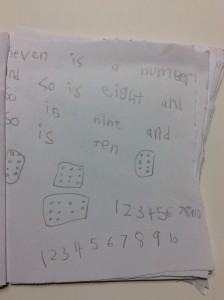 seven is a number
and so is eight and
so is nine and
so is ten
12345678910
12345678910